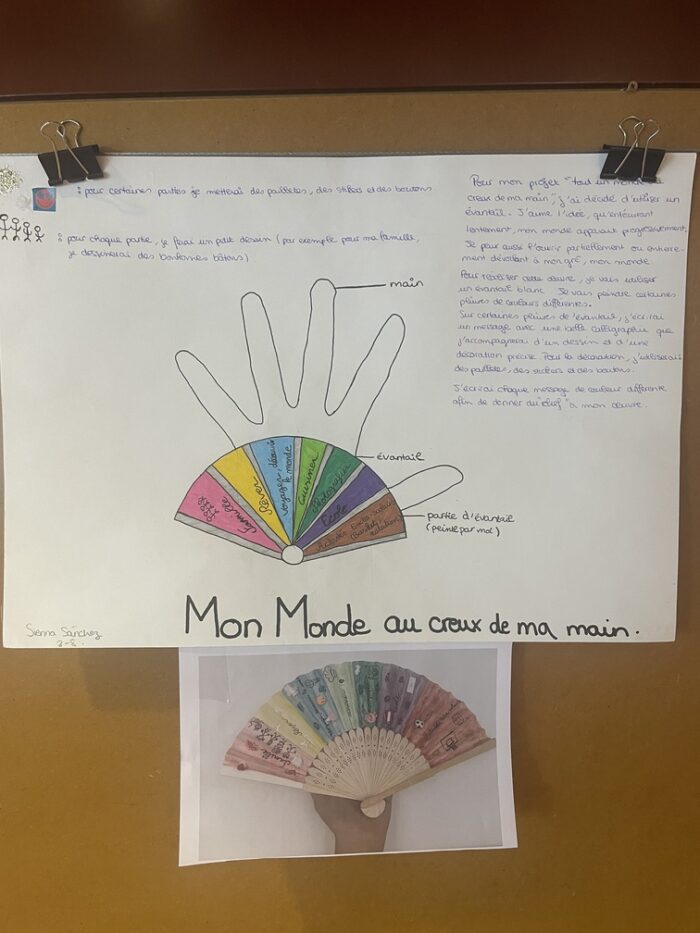 : pour certaines parties je metterai des paillettes, des stikers et des boutons
: pour chaque partie, je ferai un petit dessin (par exemple pour ma famille,
je dessinerai des bonhommes bâtons)
Pour mon projet "tout un monde
creux de ma main", j'ai décidé d'utiliser un
évantail. J'aime l'idée, qu'en
lentement, mon monde apparait progressivement.
Je peux aussi l'ouvrir partiellement ou entière-
ment dévoilant à mon gré, mon monde.
Pour réaliser cette œuvre, je vais utiliser
un évantail blanc. Je vais peindre certaines
de couleurs différentes.
Sur certaines de l'évantail, j'écrirai
un message avec une belle calligraphie que
j'accompagnerai d'un dessin et d'une
décoration précise. Pour la décoration, j'utiliserai
des paillettes, des stickers et des boutons.
J'écrirai chaque message de couleur différente
afin de donner du "chef" à mon œuvre.
main
évantail
partie d'évantail
(peinte par moi)
famille
Rêver
voyager, découvrir
le monde
cuisiner
Photographie
Ecole
Mon Monde au creux de ma main.
Sienna Sánchez
famille